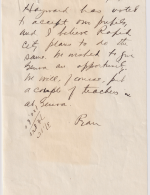 Hayward has voted
to accept our proposal
And I believe Rapid
City plans to do the
same. We wished to give
Genoa an opportunity.
We will, of course, put
a couple of teachers
at Genoa.